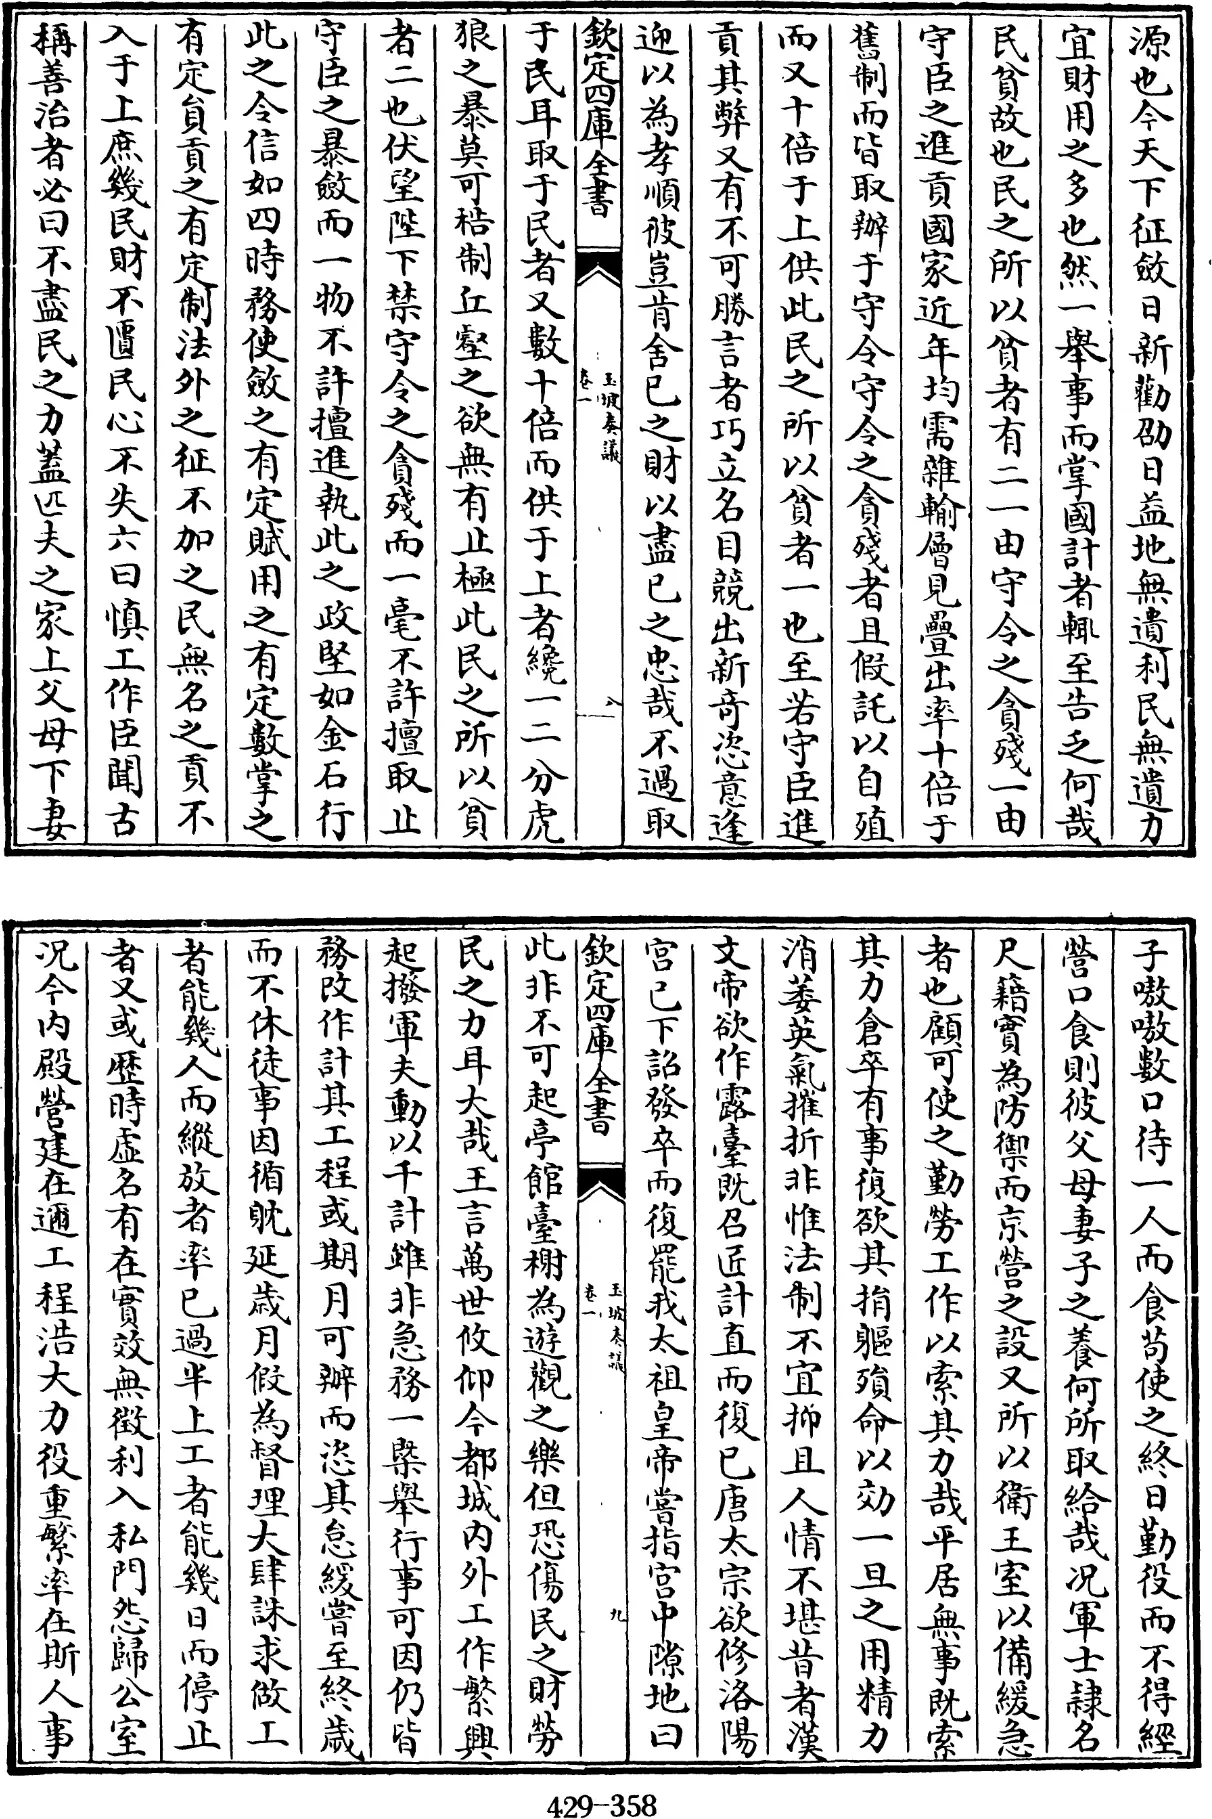 源也今天下征斂日新勸劭日益地無遺利民無遺力
宜財用之多也然一舉事而掌國計者輒至告乏何哉
民貧故也民之所以貧者有二一由守令之貪殘一由
守臣之進貢國家近年均需雜輸層見疊出率十倍于
舊制而皆取辦于守令守令之貪殘者且假託以自殖
而又十倍于上供此民之所以貧者一也至若守臣進
貢其弊又有不可勝言者巧立名目競出新竒恣意逢
迎以為孝順彼豈肯舍已之財以盡已之忠哉不過取
欽定四庫全書
玉坡奏議
卷一
八
于民耳取于民者又數十倍而供于上者纔一二分虎
狼之暴莫可梏制丘壑之欲無有止極此民之所以貧
者二也伏望陛下禁守令之貪殘而一毫不許擅取止
守臣之暴斂而一物不許擅進執此之政堅如金石行
此之令信如四時務使斂之有定賦用之有定數掌之
有定員貢之有定制法外之征不加之民無名之貢不
入于上庶幾民財不匱民心不失六曰慎工作臣聞古
稱善治者必曰不盡民之力葢匹夫之家上父母下妻
子嗷嗷數口待一人而食茍使之終日勤役而不得經
營口食則彼父母妻子之養何所取給哉况軍士隸名
尺籍實為防禦而京營之設又所以衛王室以備緩急
者也顧可使之勤勞工作以索其力哉平居無事既索
其力倉卒有事復欲其捐軀殞命以効一旦之用精力
消萎英氣摧折非惟法制不宜抑且人情不堪昔者漢
文帝欲作露臺既召匠計直而復已唐太宗欲修洛陽
宫已下詔發卒而復罷我太祖皇帝嘗指宫中隙地曰
欽定四庫全書
玉坡奏議
卷一
九
此非不可起亭館臺榭為遊觀之樂但恐傷民之財勞
民之力耳大哉王言萬世攸仰今都城内外工作繁興
起撥軍夫動以千計雖非急務一槩舉行事可因仍皆
務改作計其工程或期月可辦而恣其怠緩嘗至終歲
而不休徒事因循躭延歲月假為督理大肆誅求做工
者能幾人而縱放者率已過半上工者能幾日而停止
者又或歴時虚名有在實效無徵利入私門怨歸公室
况今内殿營建在邇工程浩大力役重繁率在斯人事
429-358